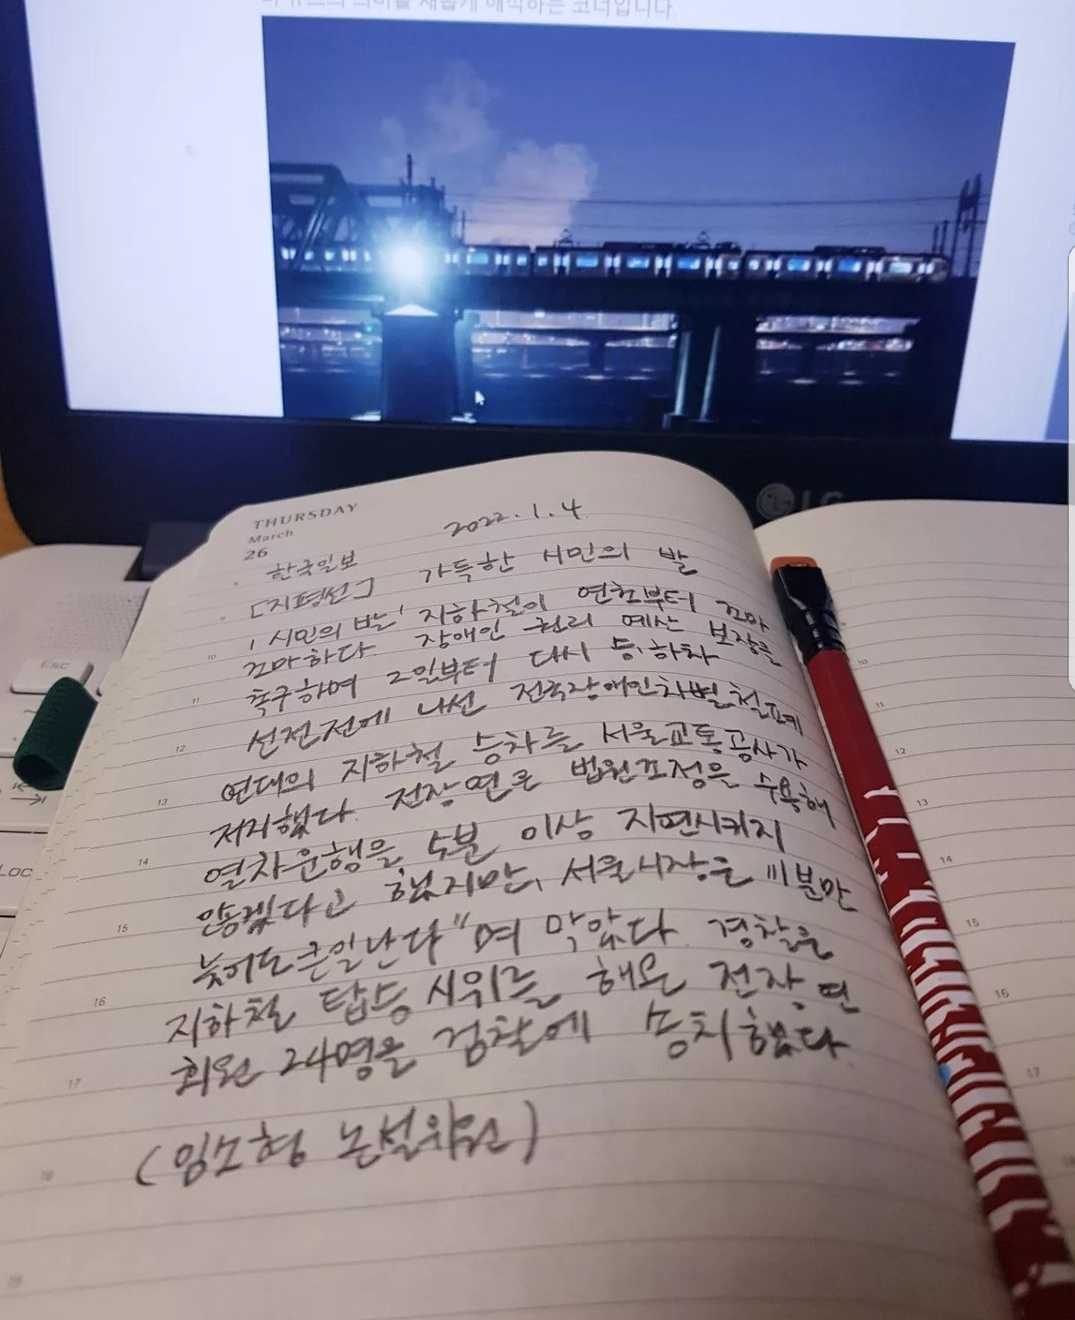 THURSDAY
March
26
2022.1.4
한국일보
[지평선] 가득한 시민의 발
'시민의 발' 지하철이 연초부터 꼬마
꼬마하다. 장애인 권리 예산 보장을
촉구하며 2일부터 다시 승.하차
선전전에 나선 전국장애인차별철폐
연대의 지하철 승차를 서울교통공사가
저지했다. 전장연은 법원조정을 수용해
열차운행을 5분 이상 지연시키지
않겠다고 했지만, 서울시장은 "1분만
늦어도 큰일난다"며 막았다. 경찰은
지하철 탑승 시위를 해온 전장연
회원 24명을 검찰에 송치했다.
(임소형 논설위원)
LG
ESC
LOC
10
11
12
13
14
15
16
17
18
19
10
11
12
13
14
15
16
17